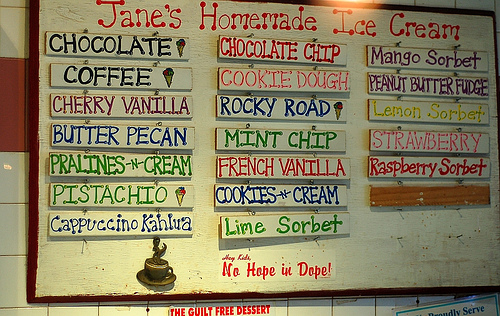 Jane's Homemade Ice Cream
CHOCOLATE
COFFEE
CHERRY VANILLA
BUTTER PECAN
PRALINES-N-CREAM
PISTACHIO
Cappuccino Kahlua
CHOCOLATE CHIP
COOKIE DOUGH
ROCKY ROAD
MINT CHIP
FRENCH VANILLA
COOKIES-N-CREAM
Lime Sorbet
Mango Sorbet
PEANUT BUTTER FUDGE
Lemon Sorbet
STRAWBERRY
Raspberry Sorbet
Hey Kids,
No Hope in Dope!
THE GUILT FREE DESSERT
Proudly Serve